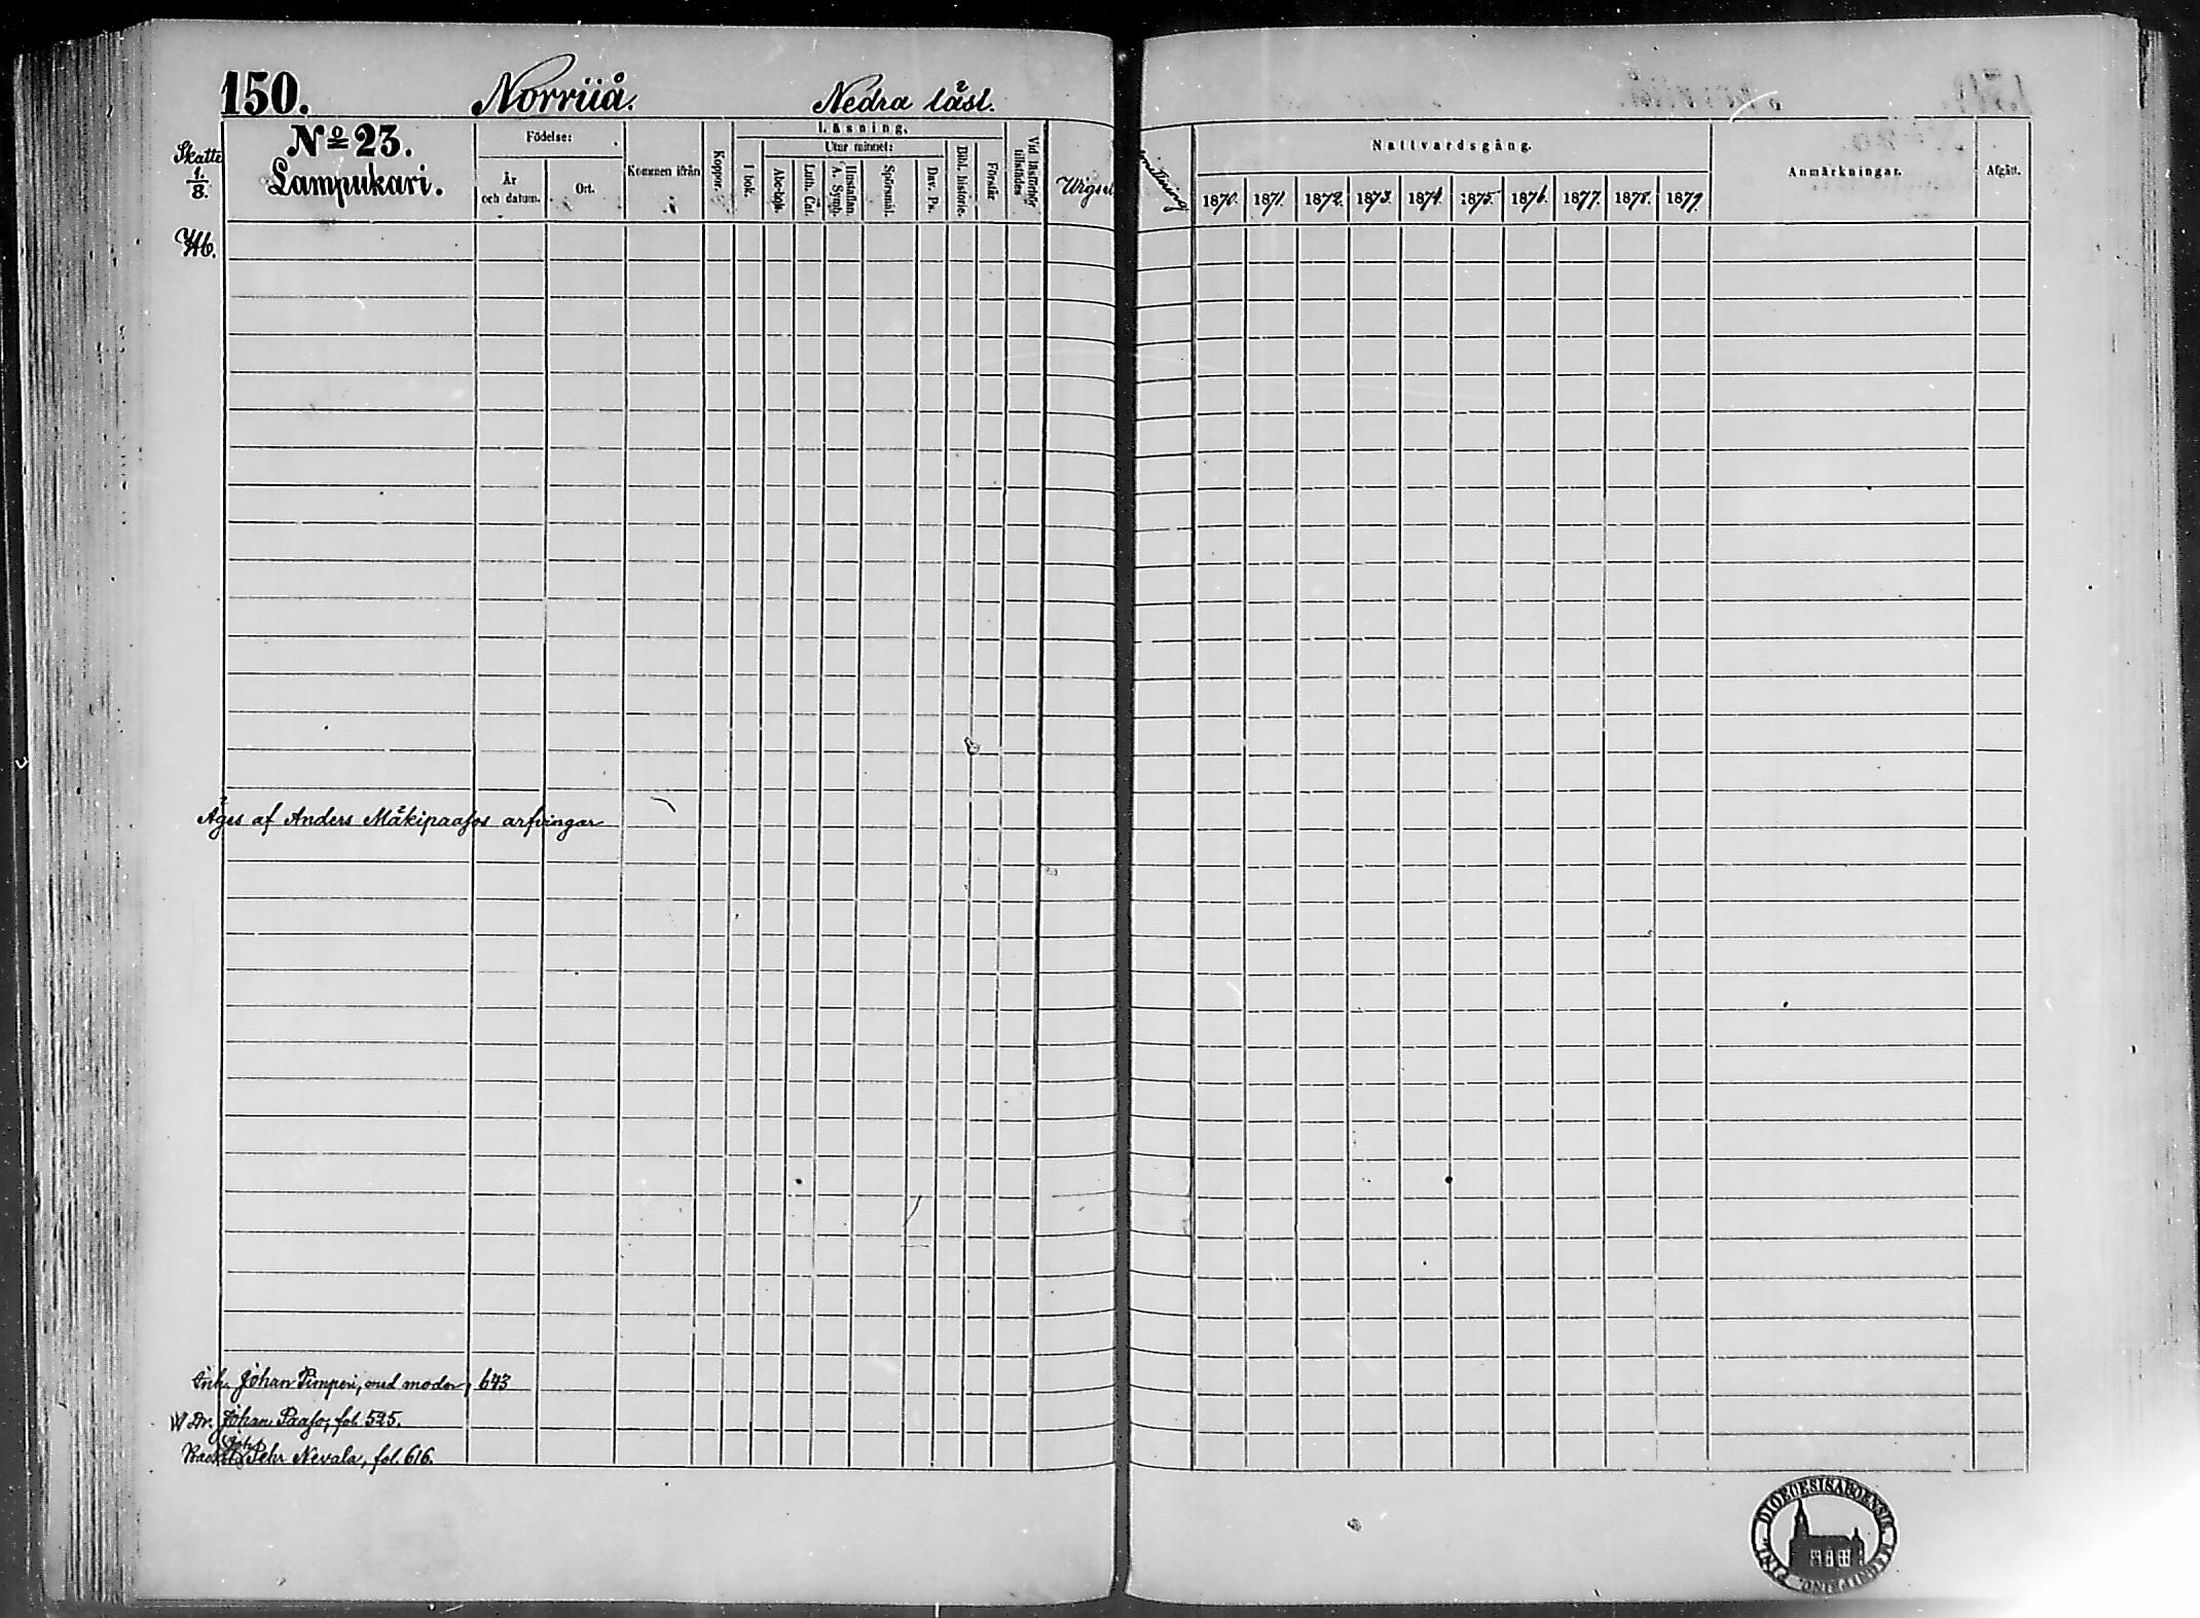 150. Norriiå. Nedra låsl.
Skatte
1/8.
No 23.
Lampukari.
Födelse:
År
och datum.
Ort.
Kommen ifrån
Koppor.
Läsning.
I bok.
Utur minnet:
Abc-bok.
Luth. Cat.
Hustaflan.
A. Symb.
Spörsmål.
Dav. Ps.
Bibl. historie.
Förstår
Vid läsförhör
tillstädes
Nattvardsgång.
1870. 1871. 1872. 1873. 1874. 1875. 1876. 1877. 1878. 1879.
Anmärkningar.
Afgått.
Äges af Anders Mäkipaasos arfvingar
Inh. Johan Pimperi, med moder, 643
Dr. Johan Paaso, fol. 525.
Joh.
Pehr Nevala, fol. 616.
DIOECESIS ABOENSIS